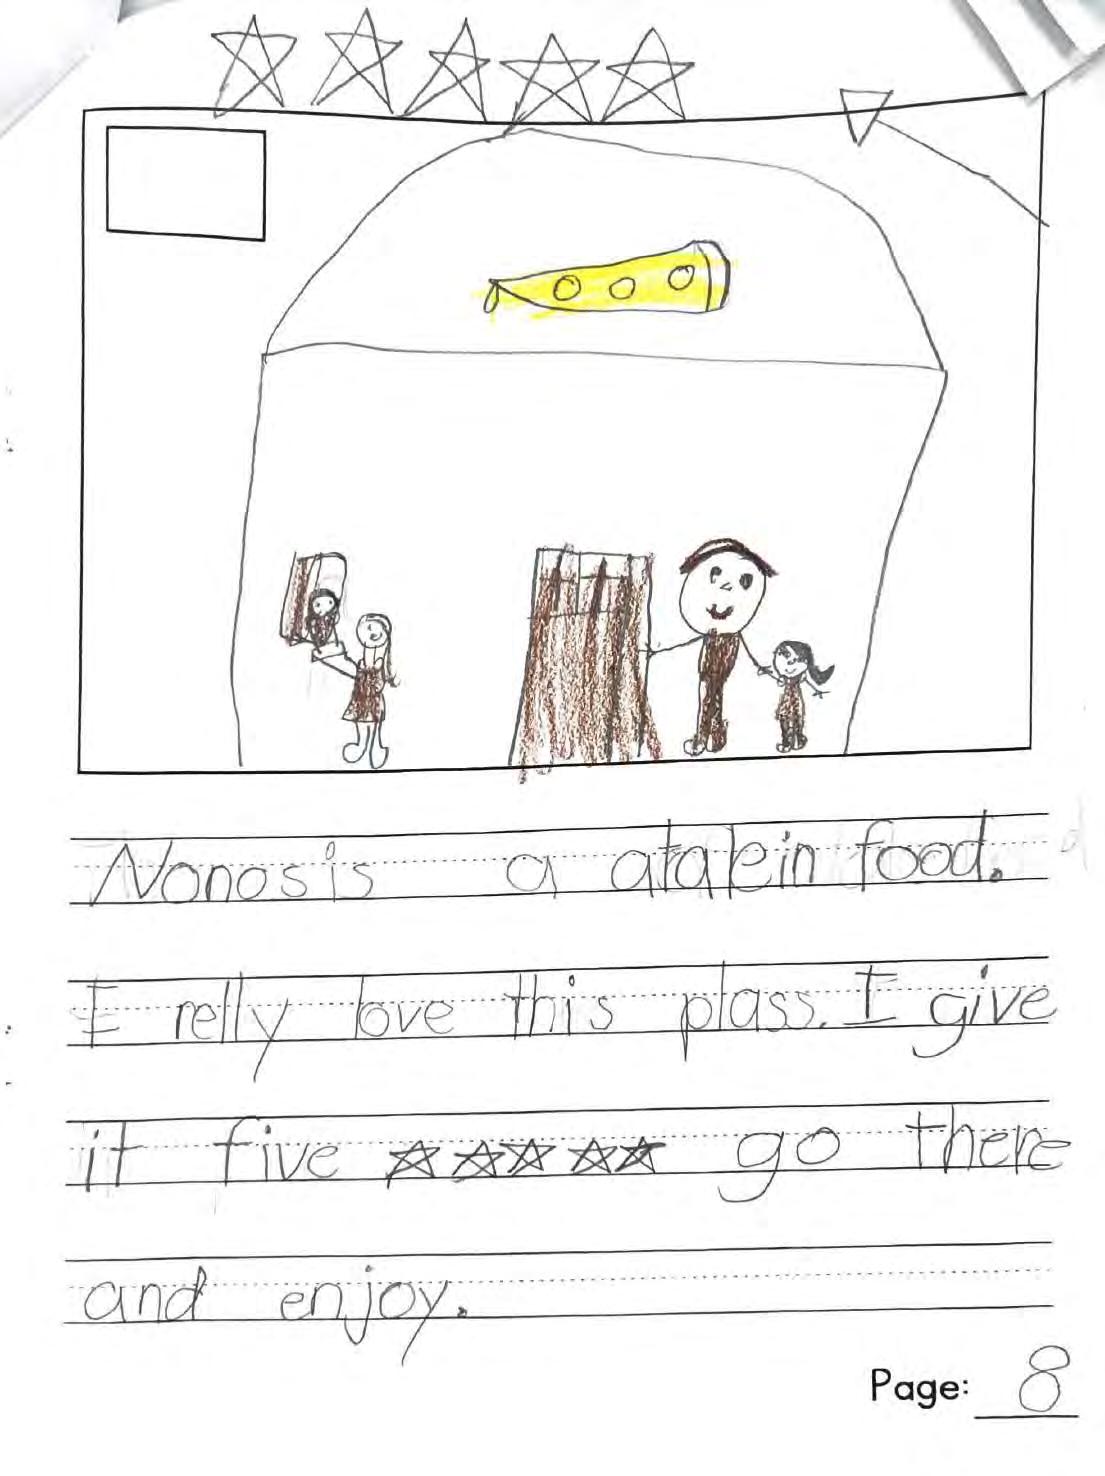 Nonos is a atalein food.
I relly love this plass. I give
it five ☆☆☆☆☆ go there
and enjoy.
Page: 8